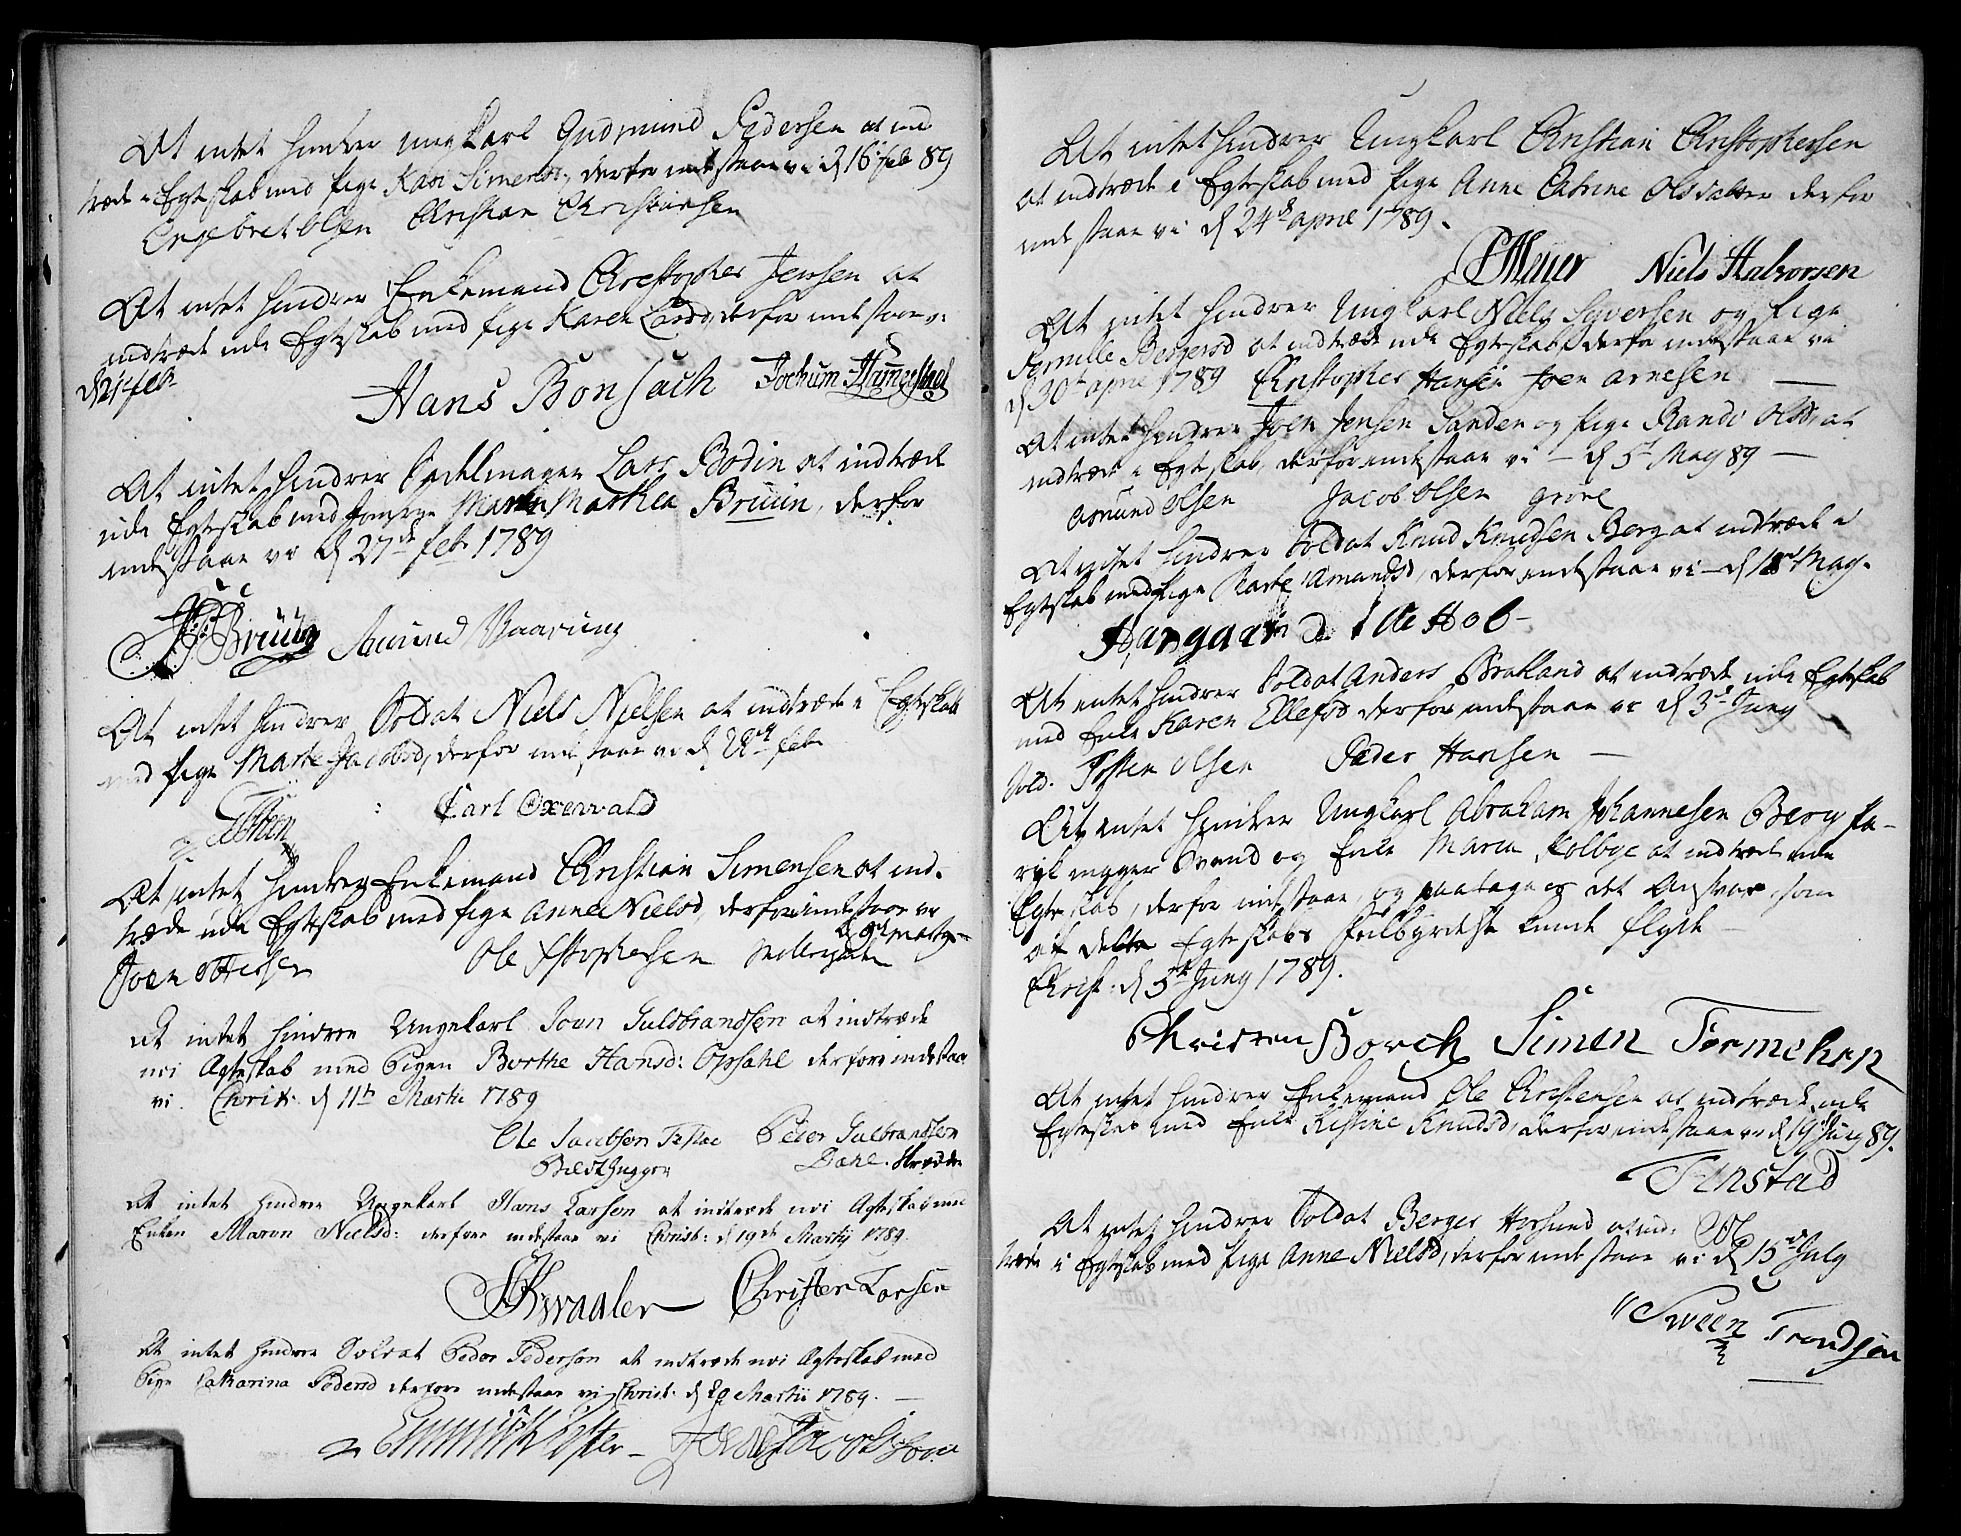 At intet hindrer ungkarl Gudmund Pedersen at ind
træde i Egteskab med pige Kari Simensd, derfor indestaar vi d 16 feb 89
Engebret Olsen Christian Christiansen
At intet hindrer Enkemand Christopher Jensen at
indtræde udi Egteskab med pige Karen Larsd, derfor indestaar vi
d 21 feb
Hans Bonsach Jochum
At intet hindrer Sadelmager Lars Bodin at indtræde
udi Egteskab med Mathea Bruun, derfor
indestaar vi d 27de feb 1789
Bruun Amund Vaarung
At intet hindrer Soldat Niels Nielsen at indtræde i Egteskab
med pige Marte Jacobsd, derfor indestaar vi d 28 feb
Carl Oxenvald
At intet hindrer Enkemand Christian Simensen at ind-
træde udi Egteskab med pige Anne Nielsd, derfor indestaar vi
d 9d Martij
Joen Ole Xstophersen
At intet hindrer Ungekarl Joen Guldbrandsen at indtræde
udi Ægteskab med Pigen Berthe Hansd: Opsahl derfore indestaar
vi. Christ: d 11th Martii 1789
Ole Jacobsen Peder Gulbrandsen
Dahl
At intet hindrer Ungekarl Hans Larsen at indtræde udi Ægteskab med
Enken Maren Nielsd: derfore indestaar vi Christ: d 19de Martij 1789.
Kwaaler Christen Larsen
At intet hindrer Soldat Peder Pedersen at indtræde udi Ægteskab med
Pige Catharina Pedersd derfore indestaar vi Christ: d 20 Martii 1789. —
At intet hindrer Ungkarl Christian Christophersen
at indtræde i Egteskab med pige Anne Catrine Olsdatter derfor
indestaar vi d 24d april 1789.
Meyer Niels Halvorsen
At intet hindrer Ungkarl Niels Syversen og pige
Pernille Bergersd at indtræde udi Egteskab, derfor indestaar vi
d 30te april 1789 Christopher Hansen Joen Arnesen —
At intet hindrer Joen Jensen Sanden og pige Randi Olsd, at
indtræde i Egteskab, derfor indestaar vi — d 5t May 89 —
Asmund Olsen Jacob Olsen
At intet hindrer Soldat Knud Knudsen Berg at indtræde i
Egteskab med pige Amandsd, derfor indestaar vi — d 18 May.
At intet hindrer Soldat Anders Bratland at indtræde udi Egteskab
med Enke Karen Ellefsd derfor indestaar vi d 3d Juny
Sold. Tosten Olsen Peder Hansen —
At intet hindrer Ungkarl Abraham Johannesen Berg fa-
Svend og Enke Maria Kolbye at indtræde udi
Egteskab, derfor indestaar, og paatager os det Ansvar, som
af dette Egteskabs fuldbyrdelse kunde flyde —
Christ: d 5te Juny 1789.
Christen Borch Simen
At intet hindrer Enkemand Ole Christensen at indtræde udi
Egteskab med Enke Kistine Knudsd, derfor indestaar vi d 19 Juny 89.
Finstad
At intet hindrer Soldat Berger Horsund at ind-
træde i Egteskab med pige Anne Nielsd, derfor indestaar vi d 15de July
Sveen Trondsen